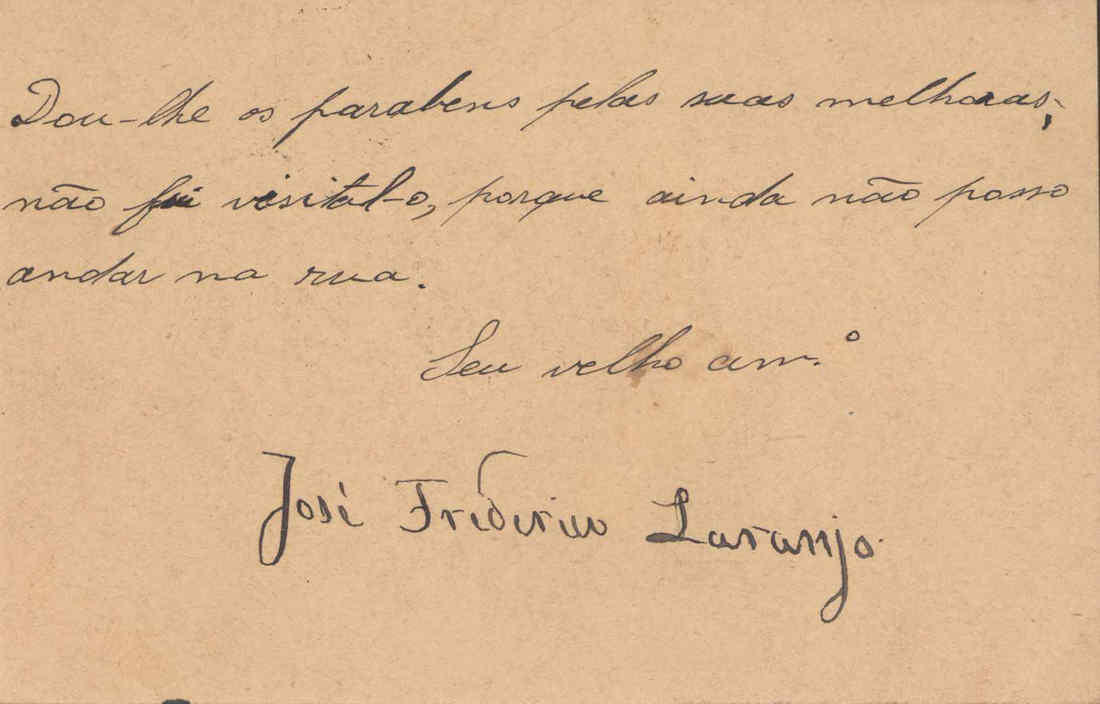 Dou-lhe os parabens pelas suas melhoras;
não fui visital-o, porque ainda não posso
andar na rua.
Seu velho am.º
José Frederico Laranjo.